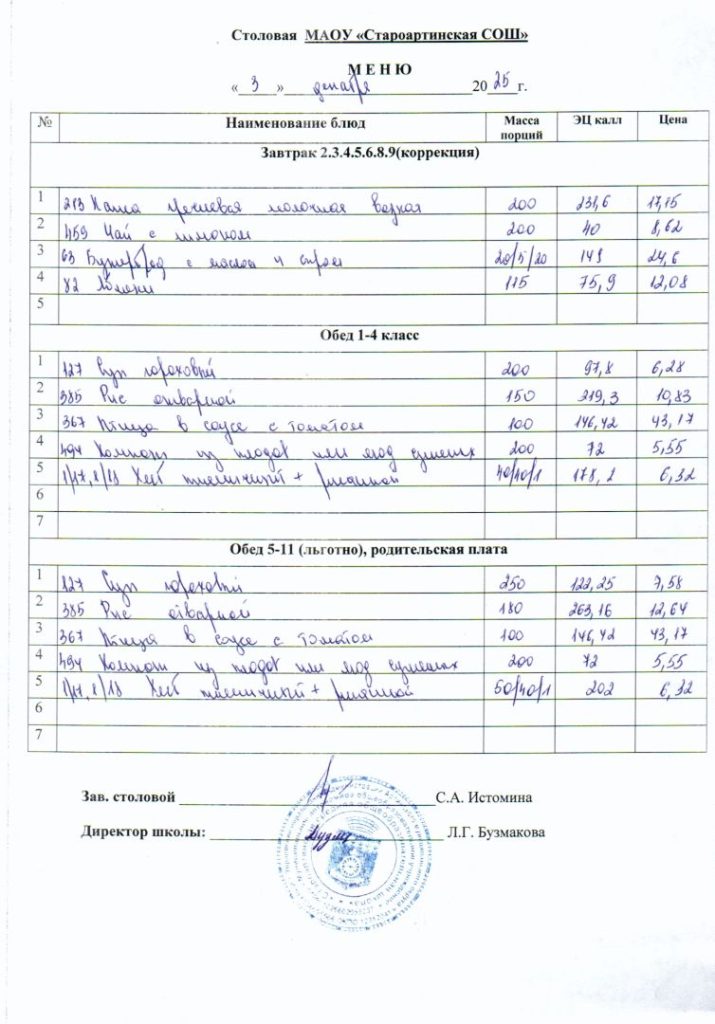 Столовая МАОУ «Староартинская СОШ»
М Е Н Ю
« 3 » декабря 2025 г.
№ Наименование блюд Масса порций ЭЦ калл Цена
Завтрак 2.3.4.5.6.8.9(коррекция)
1 213 Каша гречневая молочная вязкая 200 231,6 17,15
2 459 Чай с лимоном 200 40 8,62
3 63 Бутерброд с маслом и сыром 20/5/20 149 24,6
4 82 Яблоки 115 75,9 12,08
5
Обед 1-4 класс
1 127 Суп гороховый 200 97,8 6,28
2 385 Рис отварной 150 219,3 10,83
3 367 Птица в соусе с томатом 100 146,42 43,17
4 494 Компот из плодов или ягод сушеных 200 72 5,55
5 1/17, 1/18 Хлеб пшеничный + ржаной 40/40/1 178,2 6,32
6
7
Обед 5-11 (льготно), родительская плата
1 127 Суп гороховый 250 122,25 7,58
2 385 Рис отварной 180 263,16 12,64
3 367 Птица в соусе с томатом 100 146,42 43,17
4 494 Компот из плодов или ягод сушеных 200 72 5,55
5 1/17, 1/18 Хлеб пшеничный + ржаной 50/40/1 202 6,32
6
7
Зав. столовой С.А. Истомина
Директор школы: Л.Г. Бузмакова